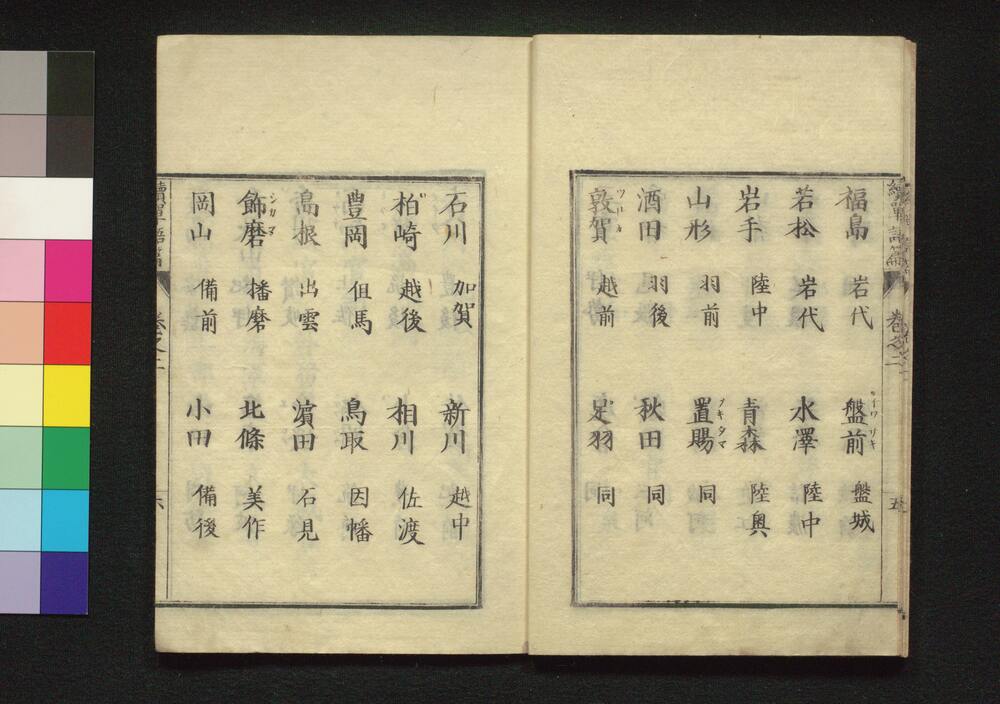 續單語篇 卷之二 五
福島 岩代 盤前 盤城
イワサキ
若松 岩代 水澤 陸中
岩手 陸中 青森 陸奥
山形 羽前 置賜 同
ヲキタマ
酒田 羽後 秋田 同
敦賀 越前 足羽 同
ツルカ
石川 加賀 新川 越中
柏崎 越後 相川 佐渡
豊岡 但馬 鳥取 因幡
島根 出雲 濵田 石見
飾磨 播磨 北條 美作
シカマ
岡山 備前 小田 備後
續單語篇 卷之二 六